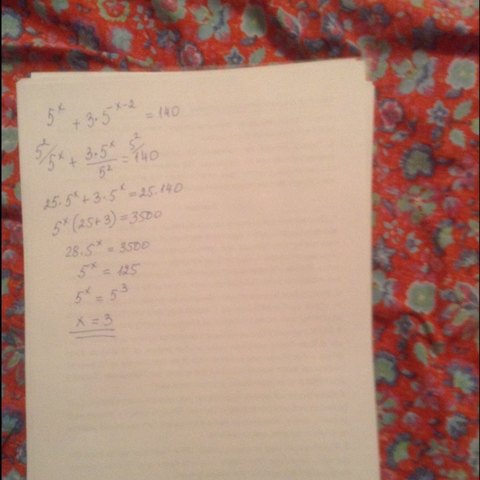 5^x + 3·5^{x-2} = 140
5^2/ 5^x + \frac{3·5^x}{5^2} = 5^2/ 140
25·5^x + 3·5^x = 25·140
5^x (25+3) = 3500
28·5^x = 3500
5^x = 125
5^x = 5^3
x = 3